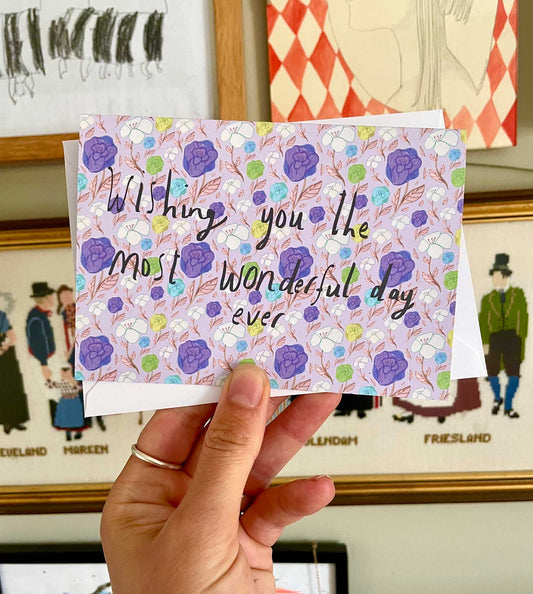 Wishing you the
most wonderful day
ever
MARKEN
FRIESLAND